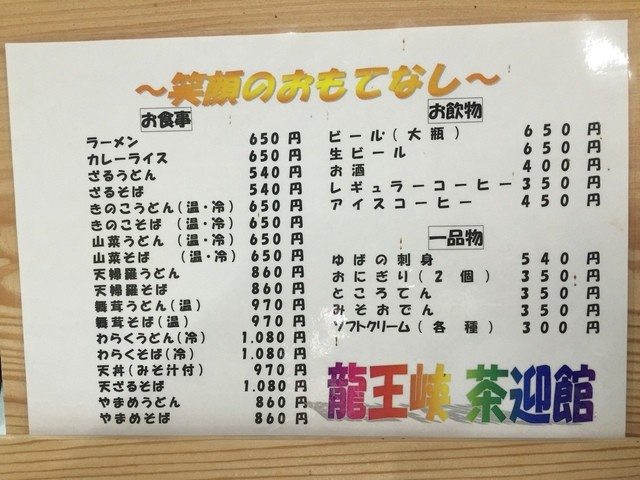 ～笑顔のおもてなし～
お食事
ラーメン 650円
カレーライス 650円
ざるうどん 540円
ざるそば 540円
きのこうどん(温・冷) 650円
きのこそば (温・冷) 650円
山菜うどん (温・冷) 650円
山菜そば (温・冷) 650円
天婦羅うどん 860円
天婦羅そば 860円
舞茸うどん(温) 970円
舞茸そば(温) 970円
わらくうどん(冷) 1.080円
わらくそば(冷) 1.080円
天丼(みそ汁付) 970円
天ざるそば 1.080円
やまめうどん 860円
やまめそば 860円
お飲物
ビール(大瓶) 650円
生ビール 650円
お酒 400円
レギュラーコーヒー 350円
アイスコーヒー 450円
一品物
ゆばの刺身 540円
おにぎり(2個) 350円
ところてん 350円
みそおでん 350円
ソフトクリーム(各種) 300円
龍王峡 茶迎館